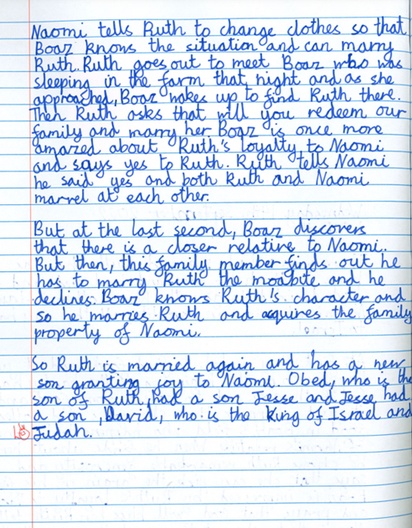 Naomi tells Ruth to change clothes so that
Boaz knows the situation and can marry
Ruth. Ruth goes out to meet Boaz who was
sleeping in the farm that night and as she
approached, Boaz wakes up to find Ruth there.
Then Ruth asks that will you redeem our
family and marry her. Boaz is once more
amazed about Ruth's loyalty to Naomi
and says yes to Ruth. Ruth tells Naomi
he said yes and both Ruth and Naomi
marvel at each other.
But at the last second, Boaz discovers
that there is a closer relative to Naomi.
But then, this family member finds out he
has to marry Ruth the moabite and he
declines. Boaz knows Ruth's character and
so he marries Ruth and aquires the family
property of Naomi.
So Ruth is married again and has a new
son granting joy to Naomi. Obed, who is the
son of Ruth, had a son Jesse and Jesse had
a son, David, who is the King of Israel and
Judah.